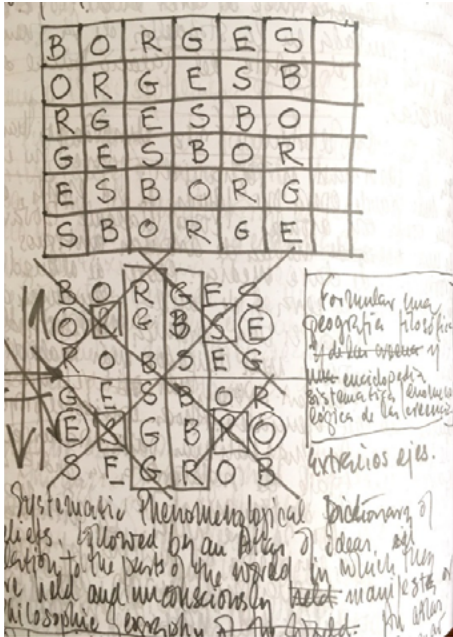 B O R G E S
O R G E S B
R G E S B O
G E S B O R
E S B O R G
S B O R G E
B O R G E S
O R G B S E
R O B S E G
G E S B O R
E S G B R O
S E G R O B
Formular una
geografía filosófica
y
enciclopedia
sistemática
lógica de las creencias
extraños ejes.
Systematic Phenomenological Dictionary of
Beliefs. followed by an Atlas of ideas, in
relation to the parts of the world in which they
are held and unconsciously held manifests
philosophic geography of the world.